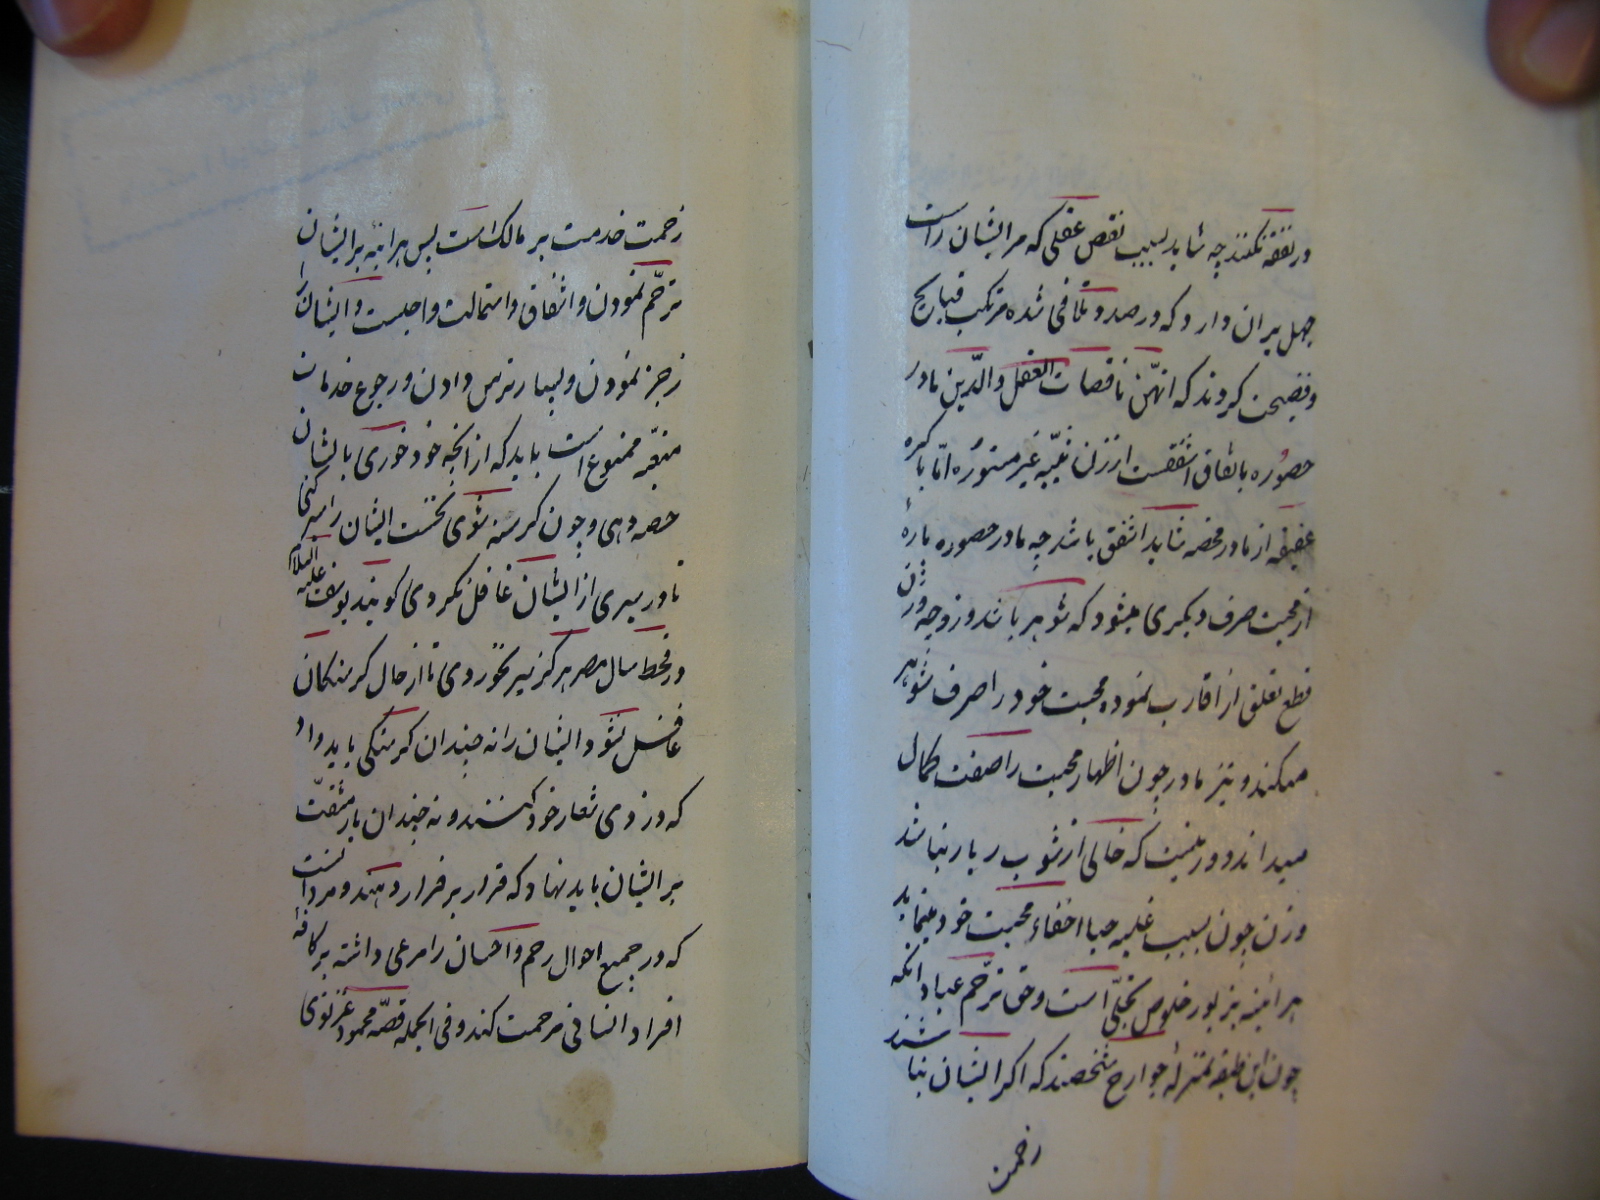 در نفقه نکنند چه شاید بسبب نقص عقلی که مر ایشان راست
جهل بر آن دارد که در صدد تلافی شده مرتکب قبایح
و فضیحت کردند که انهّن ناقصات العقل والدّین مادر
حصوره باتفاق اشفقست از زن ثیّبه غیر مستوره امّا باکره
عفیفه از مادر مخصه شاید اشفق باشد چه مادر حصوره پارهٔ
از محبت صرف دیکری میشود که شوهر باشد و زوجه و زن
قطع تعلق از اقارب نموده محبت خود را صرف شوهر
میکند و نیز مادر چون اظهار محبت را صفت کمال
میداند دور نیست که خالی از شوب ریا نباشد
و زن چون بسبب غلبه حیا اخفاء محبت خود مینماید
هر آینه بزیور خلوص محلّی است و حق ترّحم عباد آنکه
چون این طبقه بمنزلهٔ جوارح شخصند که اکر ایشان نباشند
زحمت
زحمت خدمت بر مالک است پس هر آینه بر ایشان
ترحّم نمودن و اشفاق و استمالت واجبست و ایشان را
زجر نمودن و بسیار ترس دادن و رجوع خدمات
متعبّه ممنوع است باید که از آنچه خود خوری بایشان
حصه دهی و چون کرسنه شوی نخست ایشان را سیر کنی
تا در سیری از ایشان غافل نکردی کویند یوسف علیه السلام
در قحط سال مصر هرکز سیر نخوردی تا از حال کرسنکان
غافل نشود ایشان را نه چندان کرسنکی باید داد
که دزدی شعار خود کنند و نه چندان بار مشقّت
بر ایشان باید نهاد که قرار بر فرار دهند و مرد آنست
که در جمیع احوال رحم و احسان را مرعی داشته بر کافهٔ
افراد انسانی مرحمت کند و فی الجمله قصّه محمود غزنوی